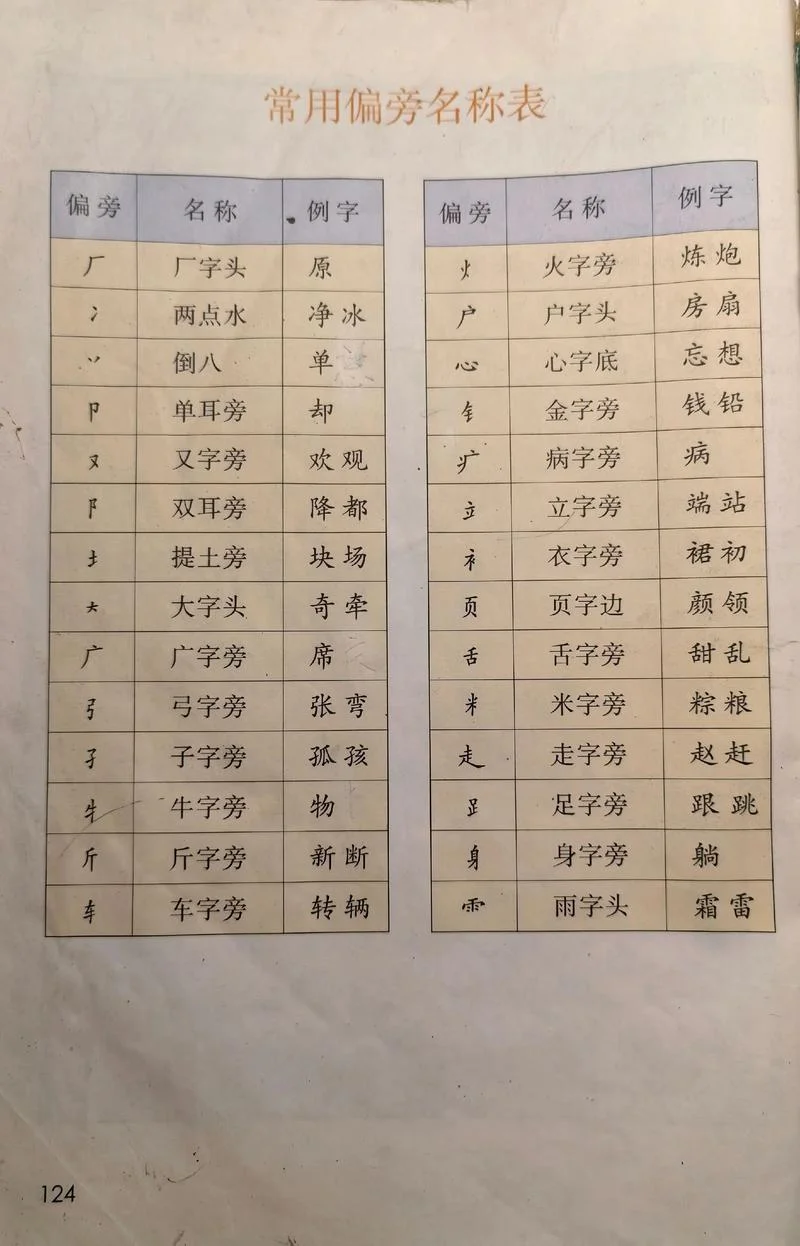 常用偏旁名称表
偏旁 名称 例字
厂 厂字头 原
冫 两点水 净 冰
丷 倒八 单
卩 单耳旁 却
又 又字旁 欢 观
阝 双耳旁 降 都
土 提土旁 块 场
大 大字头 奇 牵
广 广字旁 席
弓 弓字旁 张 弯
子 子字旁 孤 孩
牜 牛字旁 物
斤 斤字旁 新 断
车 车字旁 转 辆
偏旁 名称 例字
火 火字旁 炼 炮
户 户字头 房 扇
心 心字底 忘 想
钅 金字旁 钱 铅
疒 病字旁 病
立 立字旁 端 站
衤 衣字旁 裙 初
页 页字边 颜 领
舌 舌字旁 甜 乱
米 米字旁 粽 粮
走 走字旁 赵 赶
𧾷 足字旁 跟 跳
身 身字旁 躺
⻗ 雨字头 霜 雷
124